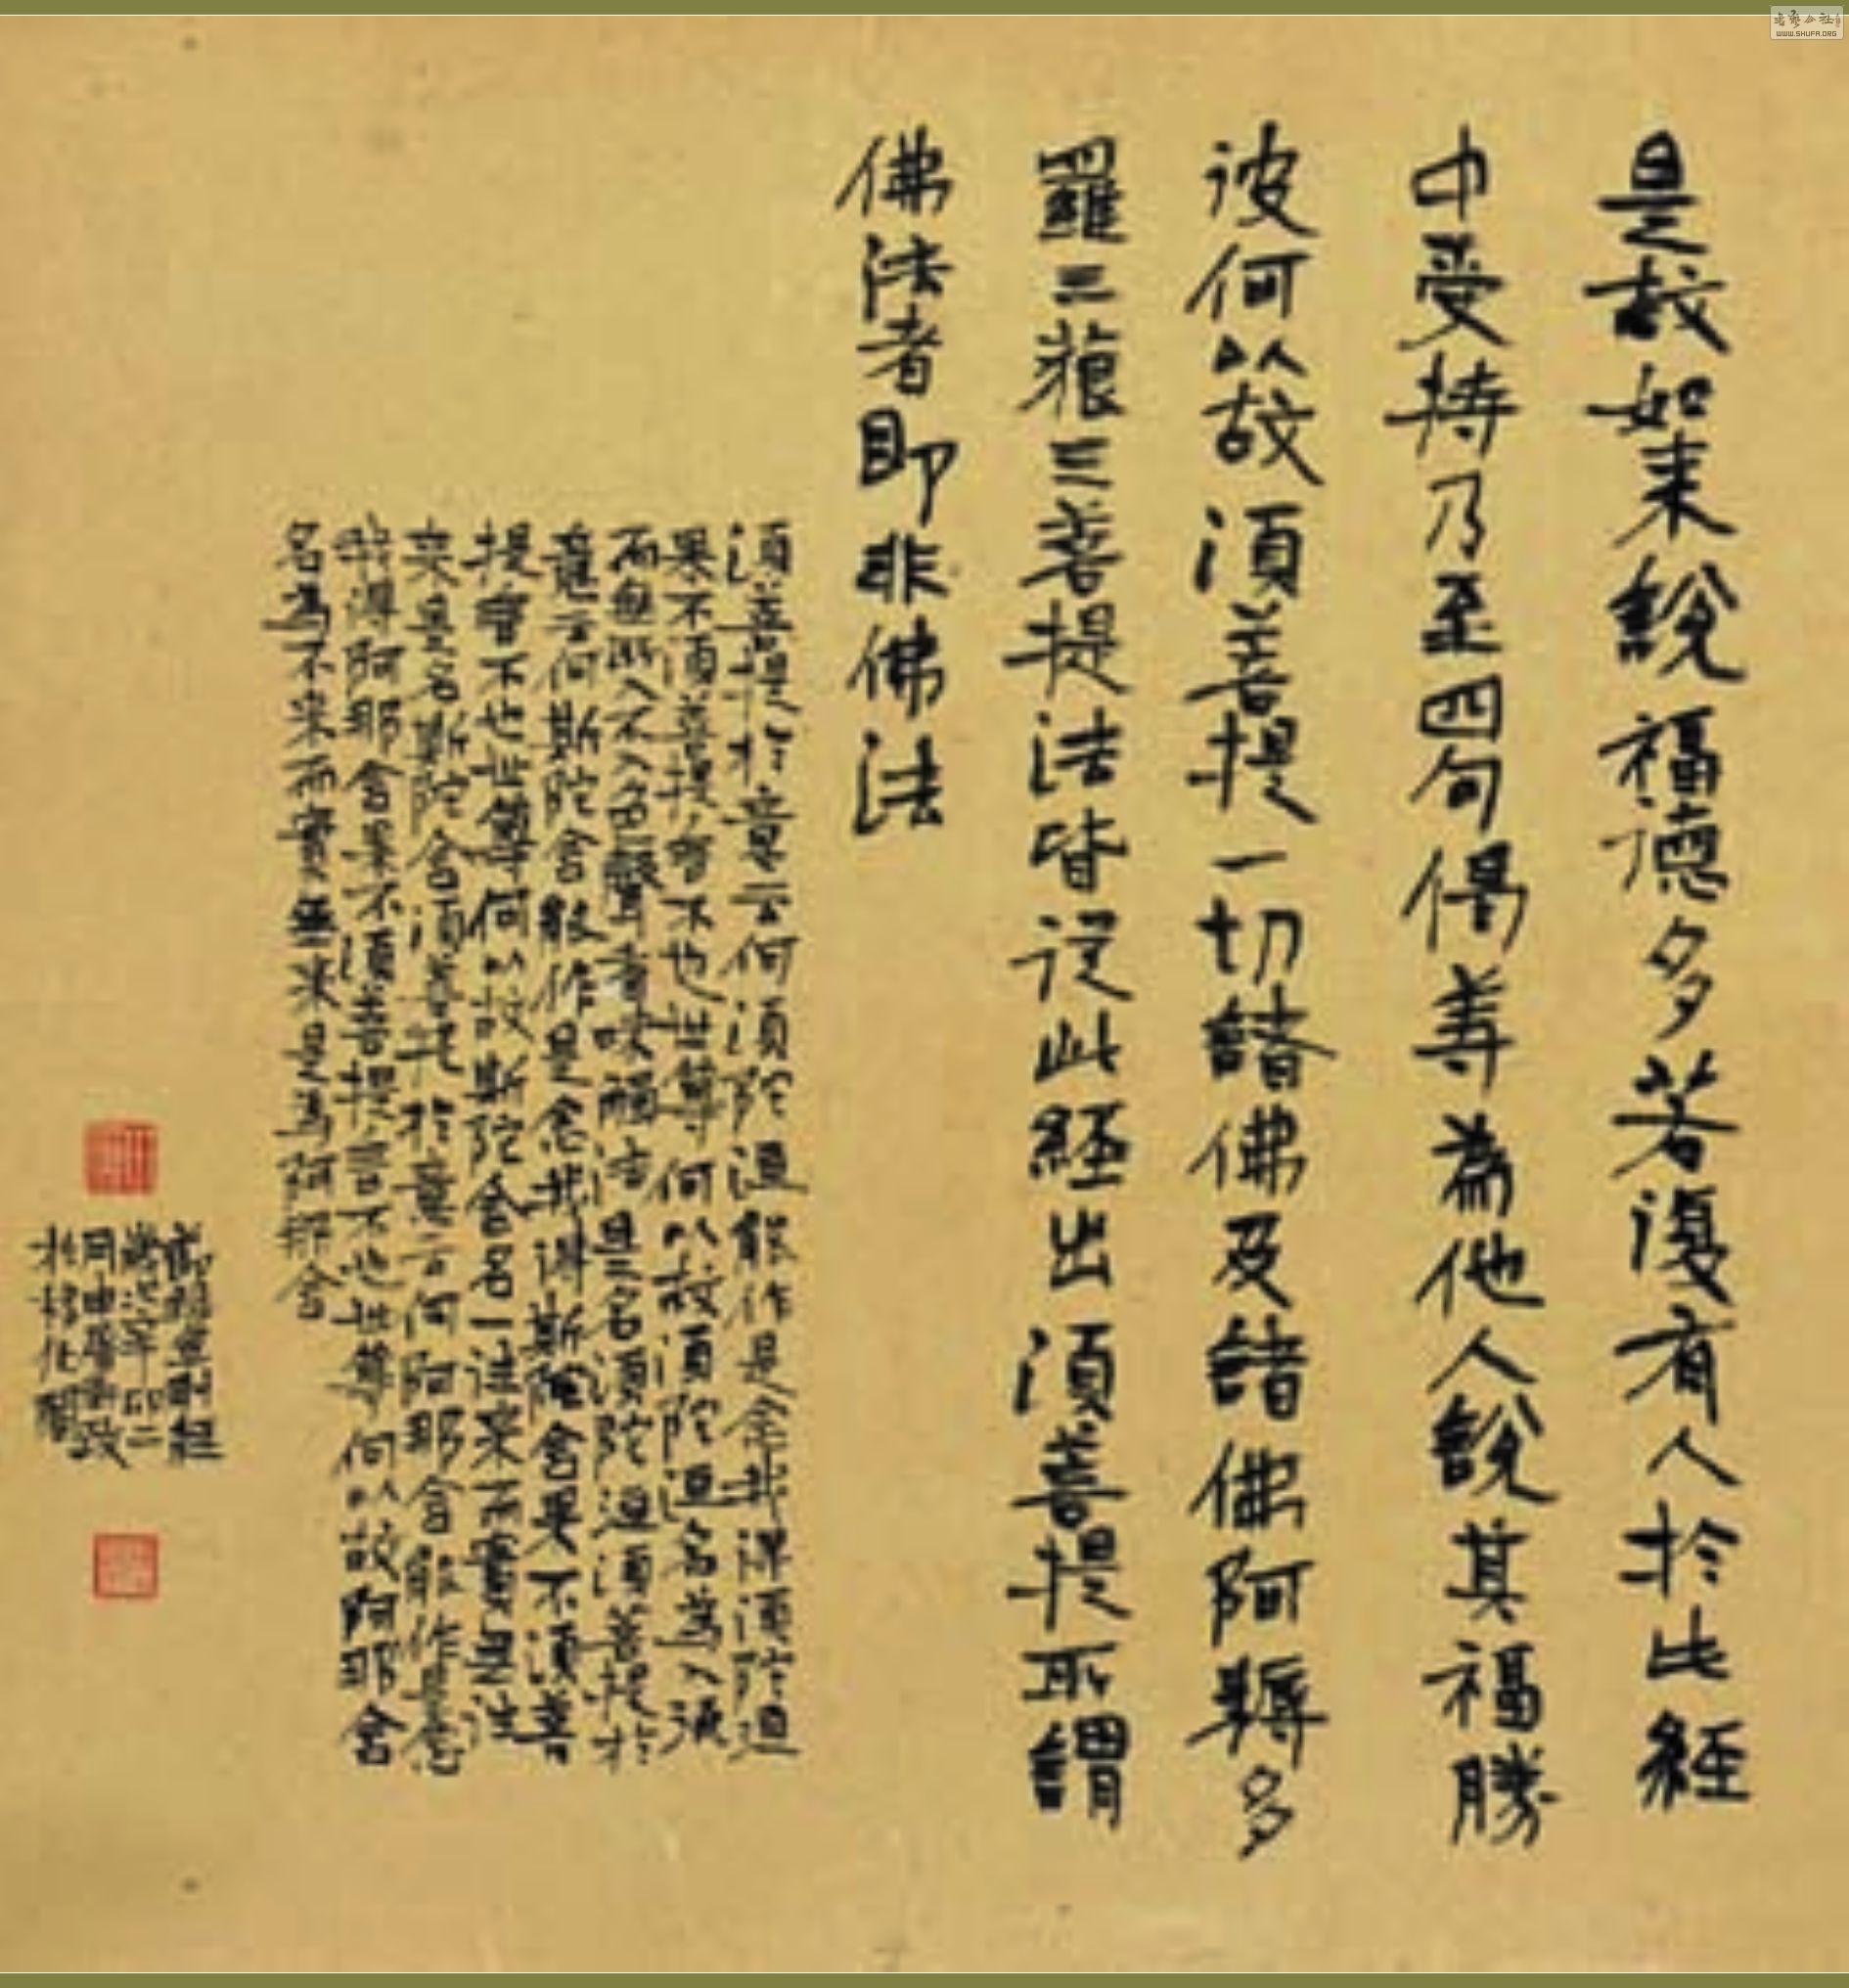 是故如来說福德多若復有人於此經
中受持乃至四句偈等為他人說其福勝
彼何以故須菩提一切諸佛及諸佛阿耨多
羅三藐三菩提法皆從此經出須菩提所謂
佛法者即非佛法
須菩提於意云何須陀洹能作是念我得須陀洹
果不須菩提言不也世尊何以故須陀洹名為入流
而無所入不入色聲香味觸法是名須陀洹須菩提於
意云何斯陀含能作是念我得斯陀含果不須菩
提言不也世尊何以故斯陀含名一往来而實无往
来是名斯陀含須菩提於意云何阿那含能作是念
我得阿那含果不須菩提言不也世尊何以故阿那含
名為不来而實無来是為阿那含
節錄金剛經
歲次辛卯二
月
WWW.SHUFA.ORG